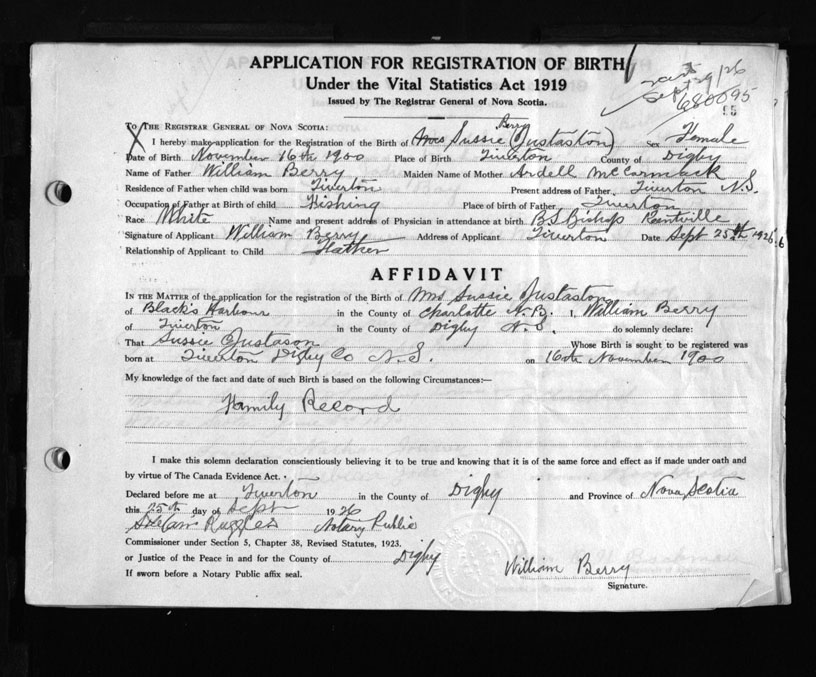 APPLICATION FOR REGISTRATION OF BIRTH
Under the Vital Statistics Act 1919
Issued by The Registrar General of Nova Scotia.
Sept 29/26
680095
TO THE REGISTRAR GENERAL OF NOVA SCOTIA:
Berry
I hereby make application for the Registration of the Birth of Mrs Sussie (Justaston) Sex Female
Date of Birth November 16th 1900 Place of Birth Tiverton County of Digby
Name of Father William Berry Maiden Name of Mother Ardell McCormack
Residence of Father when child was born Tiverton Present address of Father Tiverton N.S.
Occupation of Father at Birth of child Fishing Place of birth of Father Tiverton
Race White Name and present address of Physician in attendance at birth B.S. Bishop Kentville
Signature of Applicant William Berry Address of Applicant Tiverton Date Sept 25th 1926
Relationship of Applicant to Child Father
AFFIDAVIT
IN THE MATTER of the application for the registration of the Birth of Mrs Sussie Justaston
of Black's Harbour in the County of Charlotte N.B. I, William Berry
of Tiverton in the County of Digby N.S. do solemnly declare:
That Sussie Justason Whose Birth is sought to be registered was
born at Tiverton Digby Co N.S. on 16th November 1900
My knowledge of the fact and date of such Birth is based on the following Circumstances:—
Family Record
I make this solemn declaration conscientiously believing it to be true and knowing that it is of the same force and effect as if made under oath and
by virtue of The Canada Evidence Act.
Declared before me at Tiverton in the County of Digby and Province of Nova Scotia
this 25th day of Sept 1926
Ruggles Notary Public
Commissioner under Section 5, Chapter 38, Revised Statutes, 1923.
or Justice of the Peace in and for the County of Digby
William Berry
If sworn before a Notary Public affix seal.
Signature.